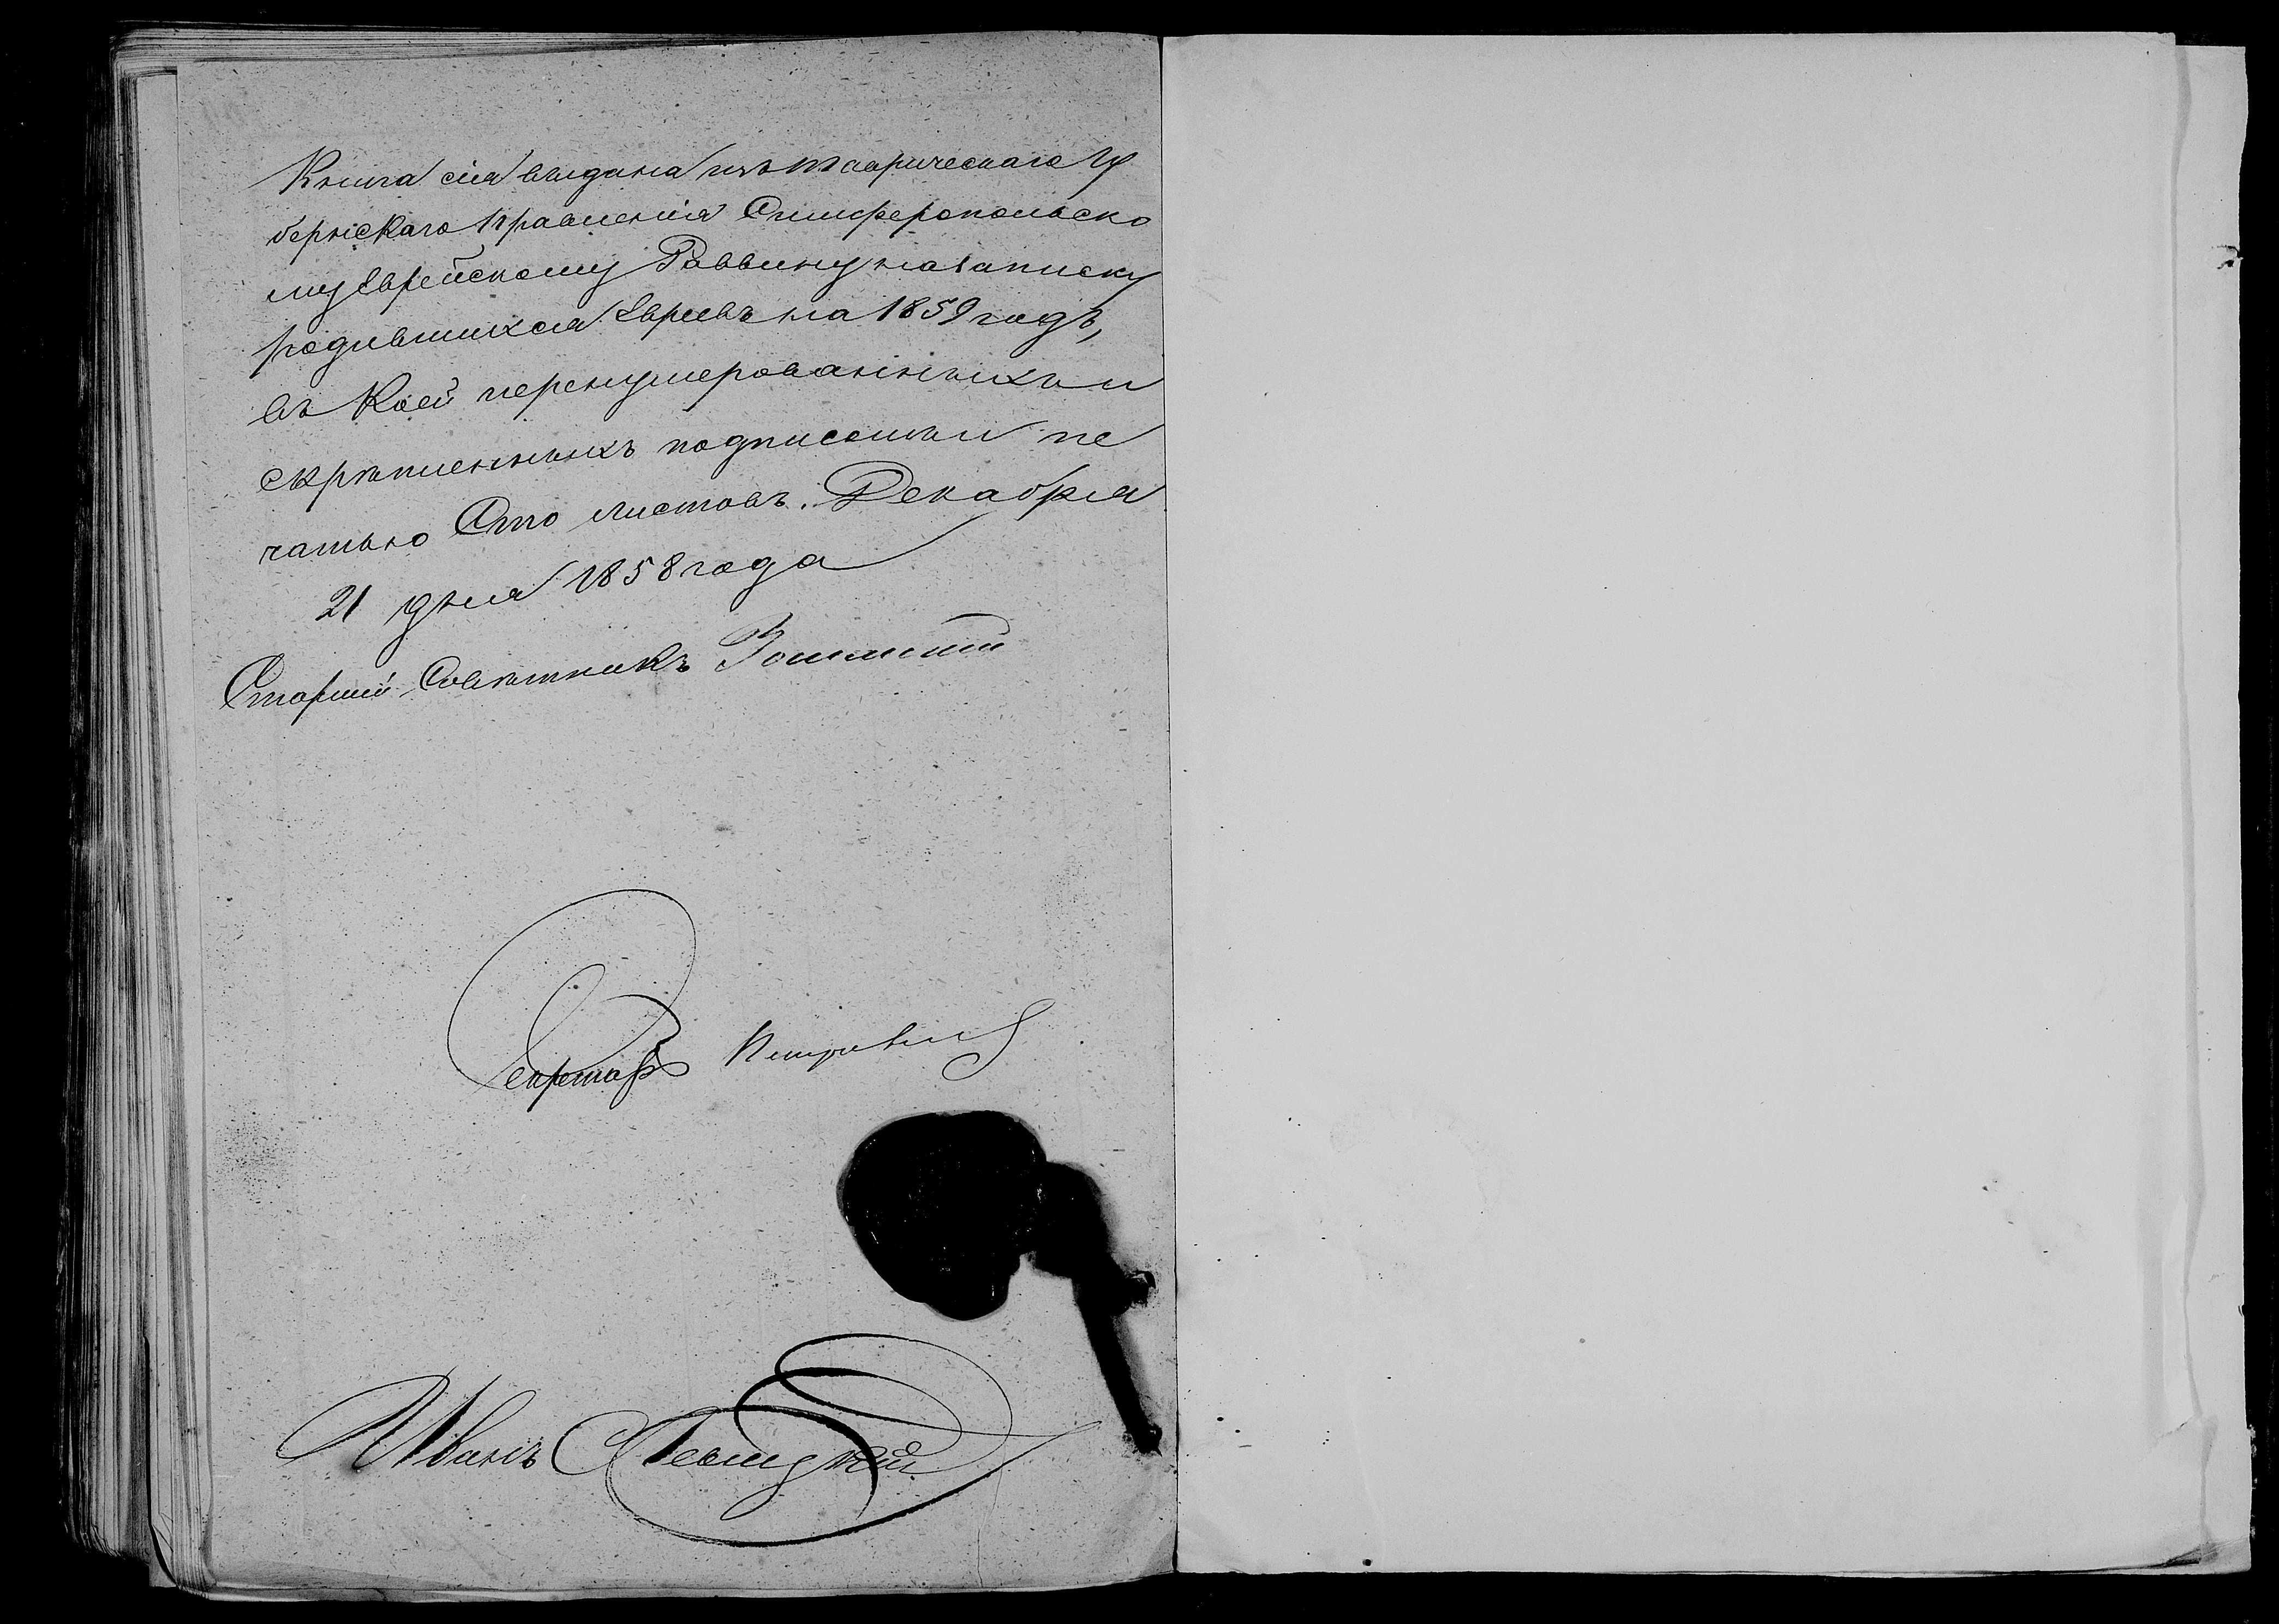 Книга сія выдана изъ Таврическаго Гу
бернскаго Правленія Симферопольско
му Еврейскому Раввину на записку
родившихся Евреевъ на 1859 годъ,
въ коей перенумерованныхъ и
скрѣпленныхъ подписомъ и пе
чатью Сто листовъ. Декабря
21 дня 1858 года
Старшій Совѣтникъ
Секретарь
Иванъ